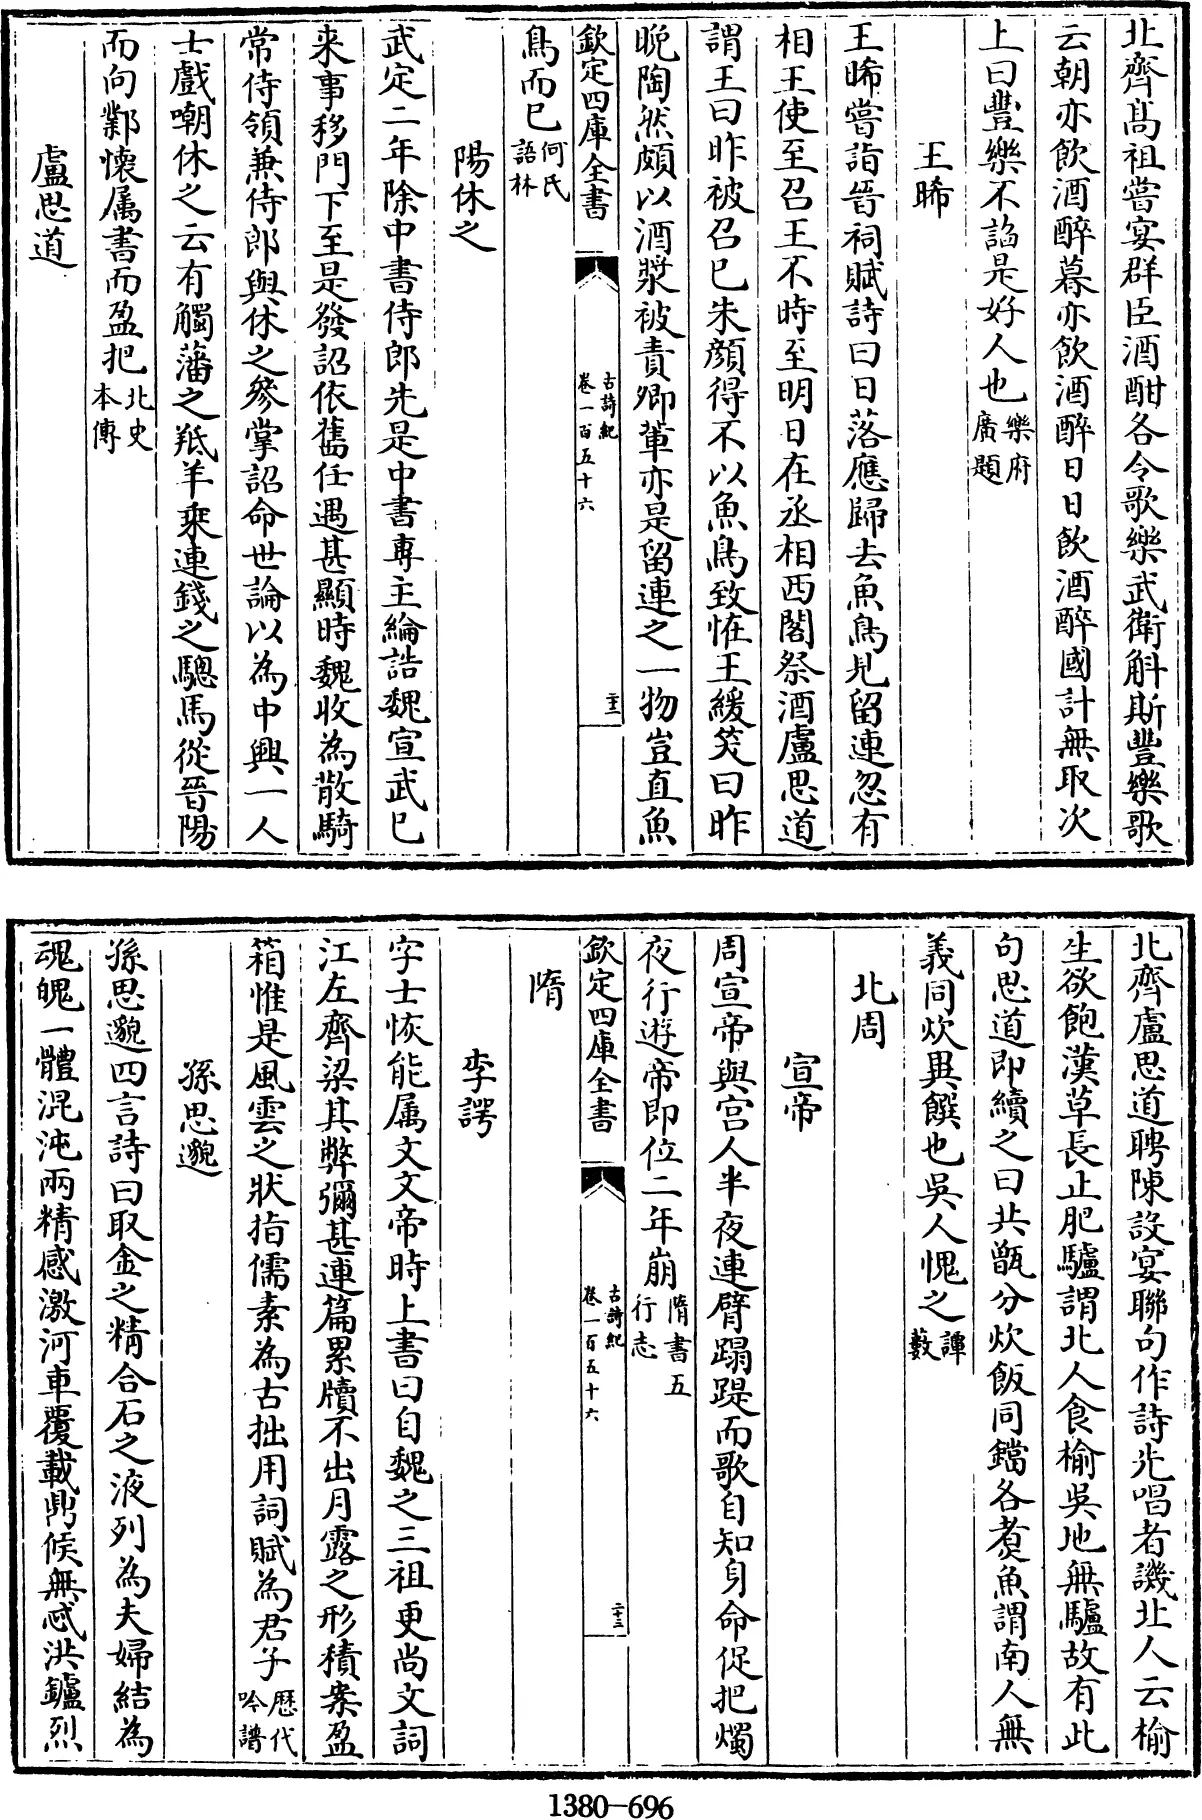 北齊髙祖嘗宴群臣酒酣各令歌樂武衛斛斯豐樂歌
云朝亦飲酒醉暮亦飲酒醉日日飲酒醉國計無取次
上曰豐樂不諂是好人也樂府
廣題
王晞
王晞嘗詣晉祠賦詩曰日落應歸去魚鳥見留連忽有
相王使至召王不時至明日在丞相西閣祭酒盧思道
謂王曰昨被召已朱顔得不以魚鳥致恠王緩笑曰昨
晚陶然頗以酒漿被責卿軰亦是留連之一物豈直魚
欽定四庫全書
古詩紀
卷一百五十六
二十二
鳥而已何氏
語林
陽休之
武定二年除中書侍郎先是中書専主綸誥魏宣武已
来事移門下至是發詔依舊任遇甚顯時魏收為散騎
常侍領兼侍郎與休之叅掌詔命世論以為中興一人
士戲嘲休之云有觸藩之羝羊乘連錢之驄馬從晉陽
而向鄴懷属書而盈把北史
本傳
盧思道
北齊盧思道聘陳設宴聯句作詩先唱者譏北人云榆
生欲飽漢草長止肥驢謂北人食榆吳地無驢故有此
句思道即續之曰共甑分炊飯同鐺各煑魚謂南人無
義同炊異饌也吳人愧之譚
藪
北周
宣帝
周宣帝與宫人半夜連臂蹋踶而歌自知身命促把燭
夜行遊帝即位二年崩隋書五
行志
欽定四庫全書
古詩紀
卷一百五十六
二十三
隋
李諤
字士恢能属文文帝時上書曰自魏之三祖更尚文詞
江左齊梁其弊彌甚連篇累牘不出月露之形積案盈
箱惟是風雲之狀指儒素為古拙用詞賦為君子歴代
吟譜
孫思邈
孫思邈四言詩曰取金之精合石之液列為夫婦結為
魂魄一體混沌兩精感激河車覆載鼎候無忒洪鑪烈
1380-696